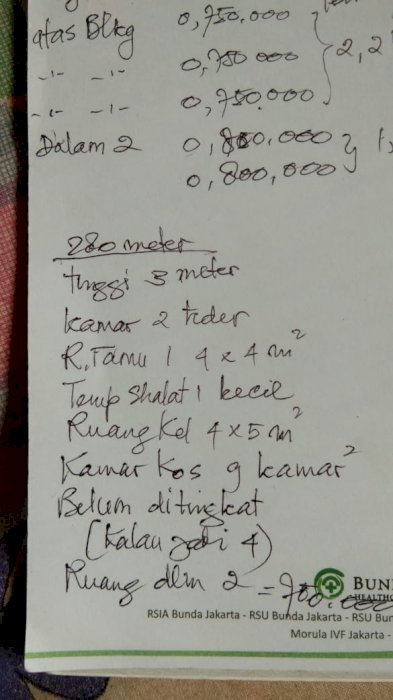 atas Blkg 0,750.000
-"- -"- 0,750.000 2,2
-"- -"- 0,750.000
Dalam 2 0,800.000
0,800,000
280 meter
tinggi 3 meter
kamar 2 tider
R. Tamu 1 4 x 4 m²
Temp shalat 1 kecil
Ruang Kel 4 x 5 m²
Kamar Kos 9 kamar²
Belum ditingkat
(Kalau jadi 4)
Ruang dlm 2 = 700.000
BUN
HEALTHC
RSIA Bunda Jakarta - RSU Bunda Jakarta - RSU Bun
Morula IVF Jakarta -